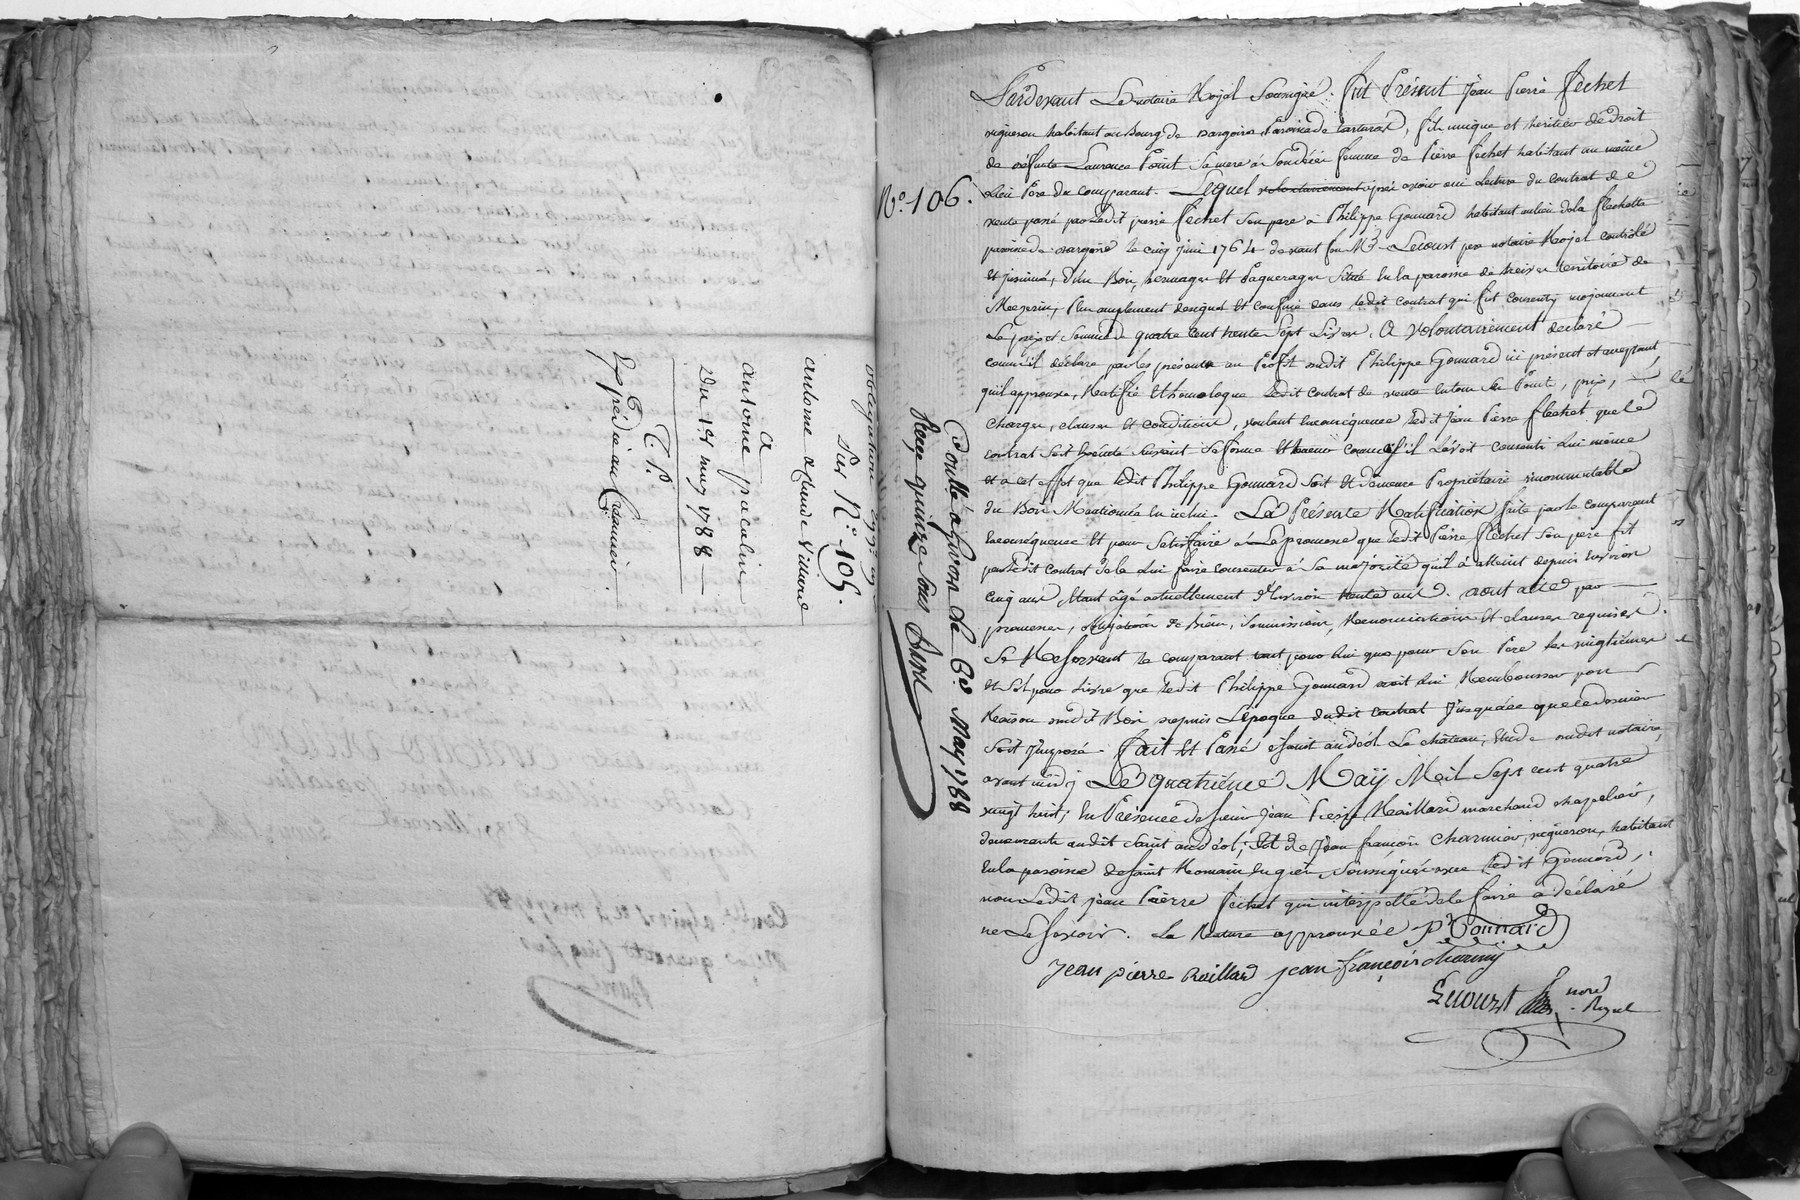 obligation
Sur N.° 105.
antoine & claude Villard
a
antoine pacalin
Du 1.er may 1788
C. P.
Expédié au Créancier
N.° 106.
Contle a Givors Le 6.e May 1788
Reçu quinze sous
Pardevant Le notaire Royal Soussigné. fut Présent Jean Pierre fléchet
vigneron habitant au Bourg de dargoire, Paroisse de tartaras, fils unique et heritier de droit
de défunte Laurence Point sa mere à son décès femme de Pierre fléchet habitant au même
Lieu Pere du comparant. Lequel volontairement après avoir oui Lecture du contrat de
vente passé par Ledit pierre fléchet son pere à Philippe Gonnard habitant au lieu de la flechette
paroisse de dargoire le cinq juin 1764 devant feu M.e Lecourt pere notaire Royal controlé
et insinué, d'un Bois, hermages et Paquerages situé en la paroisse de territoire de
plus amplement désigné et confiné dans ledit contrat qui fut consenty moyennant
Le prix et somme de quatre cent trente sept Livres. a volontairement declaré
comme il déclare par les présentes au Profit dudit Philippe Gonnard ici présent et acceptant
qu'il approuve, Ratifie et homologue Ledit contrat de vente en tous ses Points, prix,
charges, clauses et conditions, voulant en consequence Ledit Jean Pierre fléchet que le
contrat soit exécuté suivant sa forme et teneur comme s'il L'avoit consenti Lui même
et à cet effet que Ledit Philippe Gonnard soit et demeure Propriétaire incommutable
du Bois Mentionné en icelui. La Présente Ratification faite par le comparant
en consequence et pour satisfaire à La promesse que Ledit Pierre fléchet son pere fit
par Ledit contrat de la Lui faire consentir à sa majorité qu'il à atteint depuis environ
cinq ans étant âgé actuellement d'environ trente ans. dont acte par
promesses, obligation de Biens, soumissions, Renonciations et clauses requises.
Se Reservant le comparant tant pour Lui que pour son Pere les vingtièmes
et sol pour Livre que Ledit Philippe Gonnard doit Lui Rembourser pour
Raison dudit Bois depuis L'époque dudit contrat jusqu'à ce que ce dernier
soit imposé. fait et Passé à saint andéol Le château, Etude dudit notaire,
avant midy Le quatrième May Mil sept cent quatre
vingt huit; En Présence de sieur Jean Pierre Raillard marchand chapelier,
demeurant audit saint andéol; Et de Jean françois Charmion, vigneron, habitant
en la paroisse de saint Romain en gier soussignés avec Ledit Gonnard,
non Ledit jean Pierre fléchet qui interpellé de le faire a déclaré
ne Le savoir. La Rature approuvée. p.re Gonnard
Jean pierre Raillard jean françois
Lecourt not.re Royal